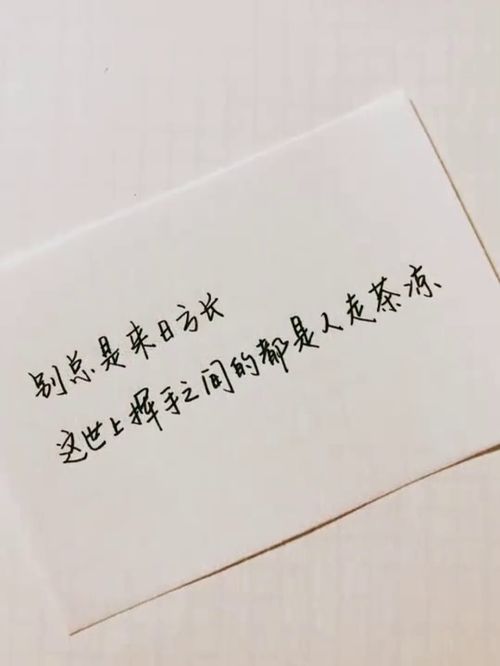 别总是来日方长
这世上挥手之间的都是人走茶凉